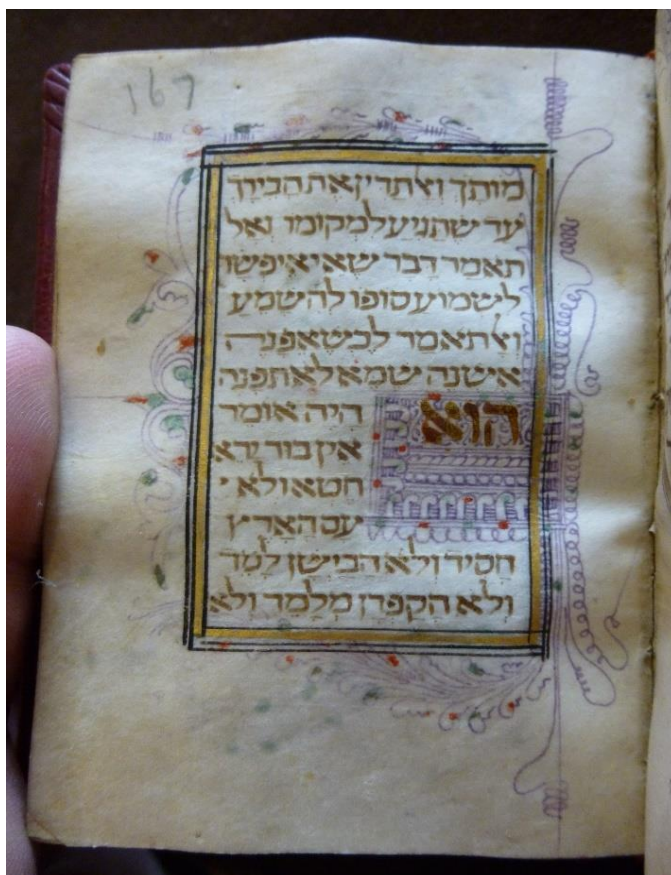 167
מותך ואל תדין את חבירך
עד שתגיע למקומו ואל
תאמר דבר שאי איפשר
לשמוע סופו להשמע
ואל תאמר לכשאפנה
אישנה שמא לא תפנה
הוא היה אומר
אין בור ירא
חטא ולא י
עם הארץ
חסיד ולא הבישן למד
ולא הקפדן מלמד ולא